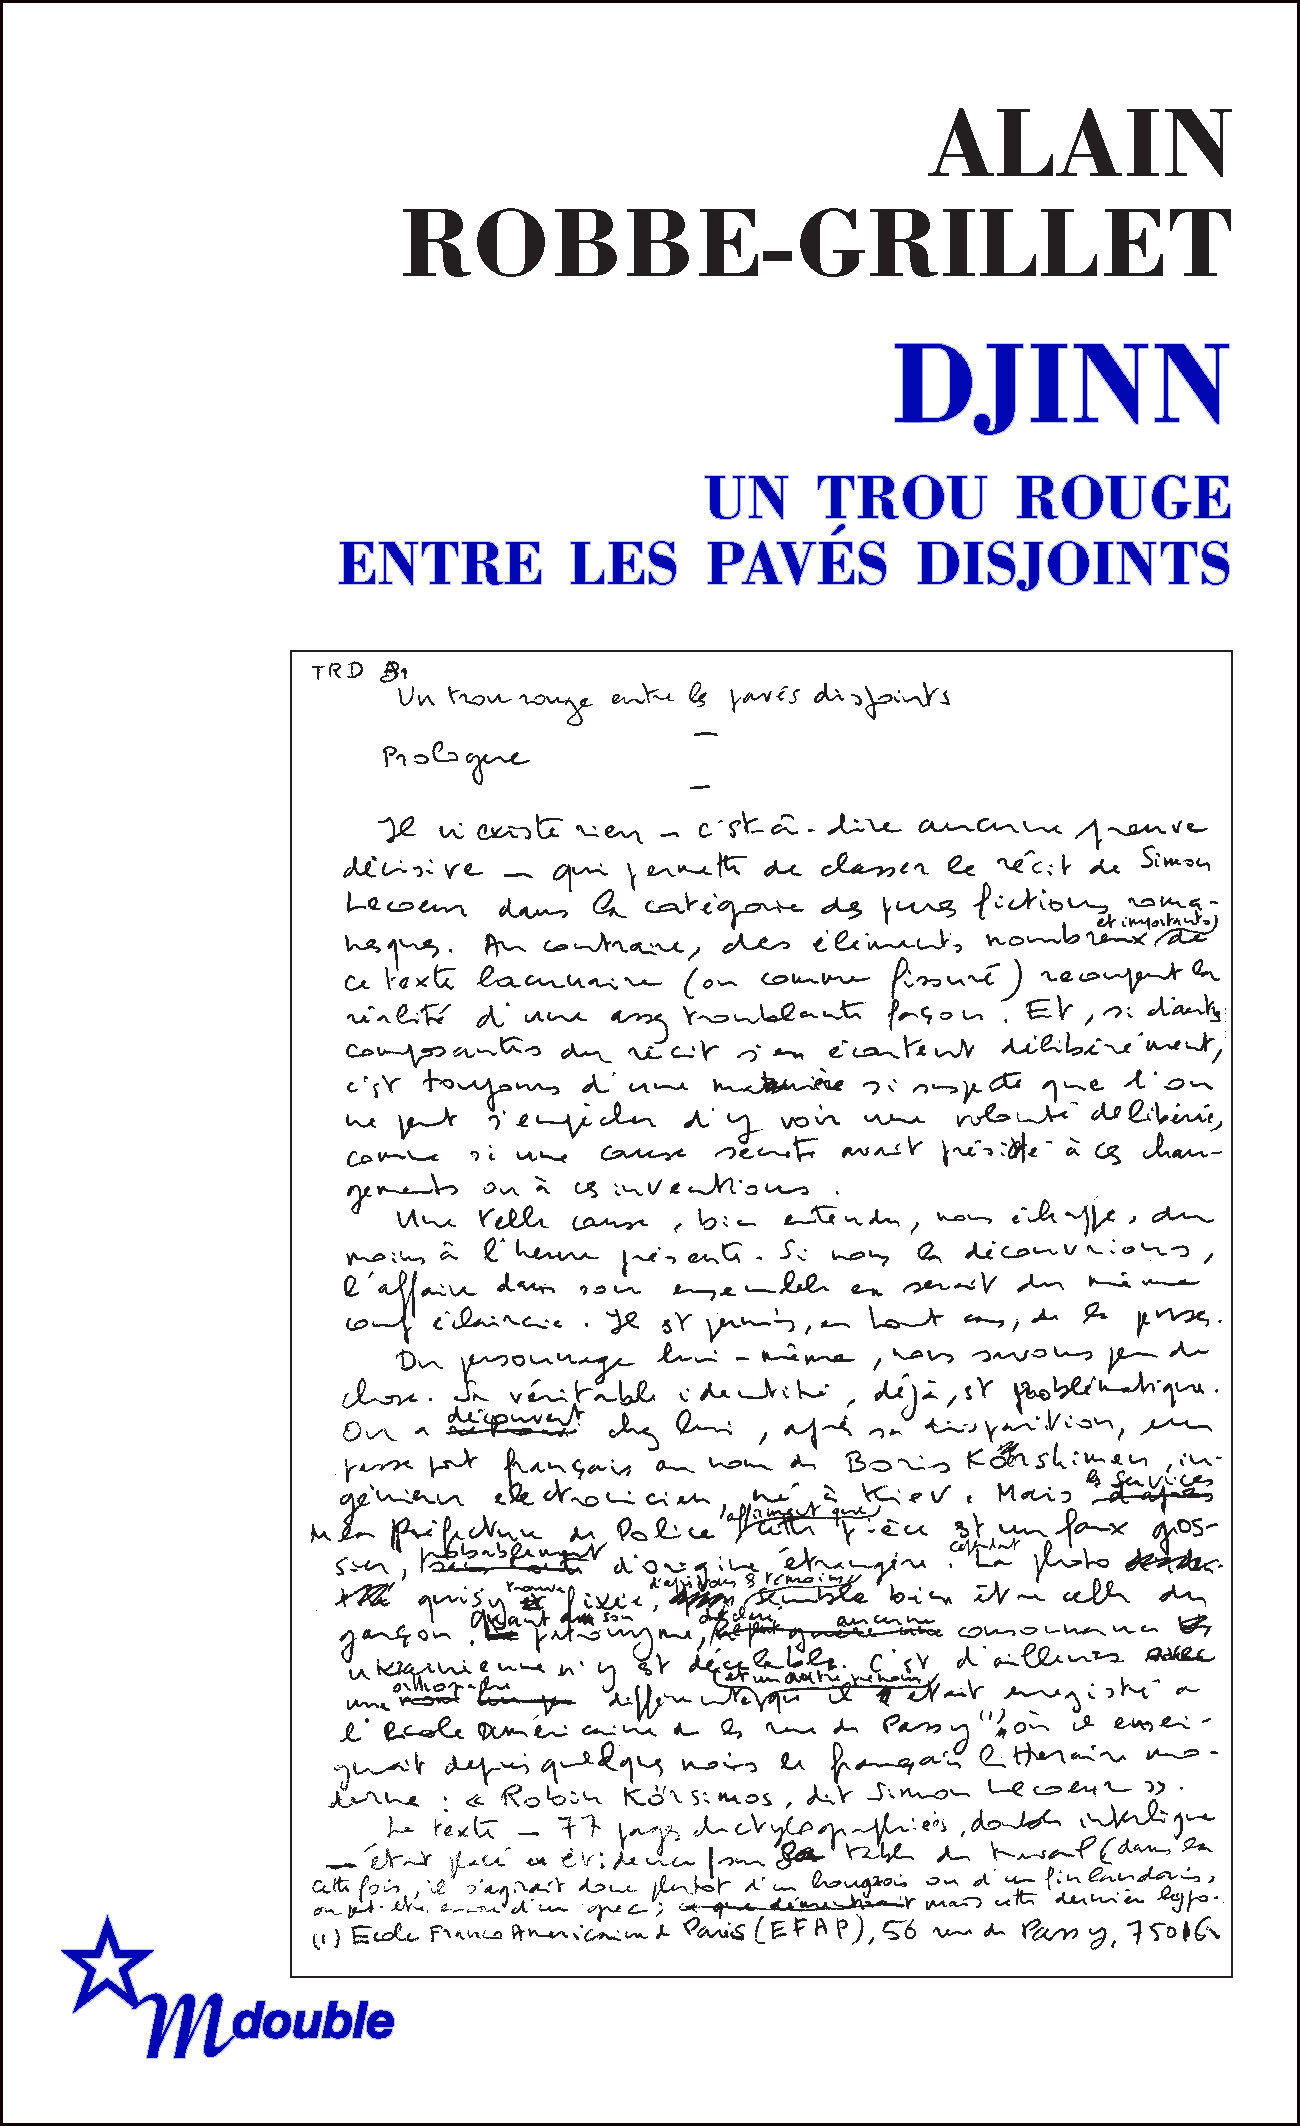 ALAIN
ROBBE-GRILLET
DJINN
UN TROU ROUGE
ENTRE LES PAVÉS DISJOINTS
TRD
Un trou rouge entre les pavés disjoints
Prologue
Il n'existe rien – c'est-à-dire aucune preuve
décisive – qui permette de classer le récit de Simon
Lecoeur dans la catégorie des pures fictions roma-
et importants
nesques. Au contraire, des éléments nombreux de
ce texte lacunaire (ou comme fissuré) recoupent la
réalité d'une assez troublante façon. Et, si d'autres
composantes du récit s'en écartent délibérément,
c'est toujours d'une manière si suspecte que l'on
ne peut s'empêcher d'y voir une volonté délibérée,
comme si une cause secrète avait présidé à ces chan-
gements ou à ces inventions.
Une telle cause, bien entendu, nous échappe, du
moins à l'heure présente. Si nous la découvrions,
l'affaire dans son ensemble en serait du même
coup éclaircie. Il est permis, en tout cas, de le penser.
Du personnage lui-même, nous savons peu de
chose. Sa véritable identité, déjà, est problématique.
découvert
On a chez lui, après sa disparition, un
passeport français au nom de Boris Körshimen, in-
les services
génieur électronicien, né à Kiev. Mais d'après
affirment que
la Préfecture de Police cette pièce est un faux gros-
probablement cependant
sier, d'origine étrangère. La photo
trouve d'après les témoins
qui s'y fixée, semble bien être celle du
Quant son aucune
garçon. patronyme, consonance
ukrainienne n'y est décelable. C'est d'ailleurs avec
orthographe et un autre prénom
une différente qu'il était enregistré à
l'Ecole américaine de la rue de Passy (1), où il ensei-
gnait depuis quelques mois le français littéraire mo-
derne : « Robin Körsimos, dit Simon Lecoeur ».
Le texte – 77 pages dactylographiées, double interligne
– était placé en évidence sur la table de travail (dans la
cette fois, il s'agirait donc plutôt d'un hongrois ou d'un finlandais,
ou peut-être encore d'un grec ; mais cette dernière hypo-
(1) Ecole Franco Américaine de Paris (EFAP), 56 rue de Passy, 75016
M double